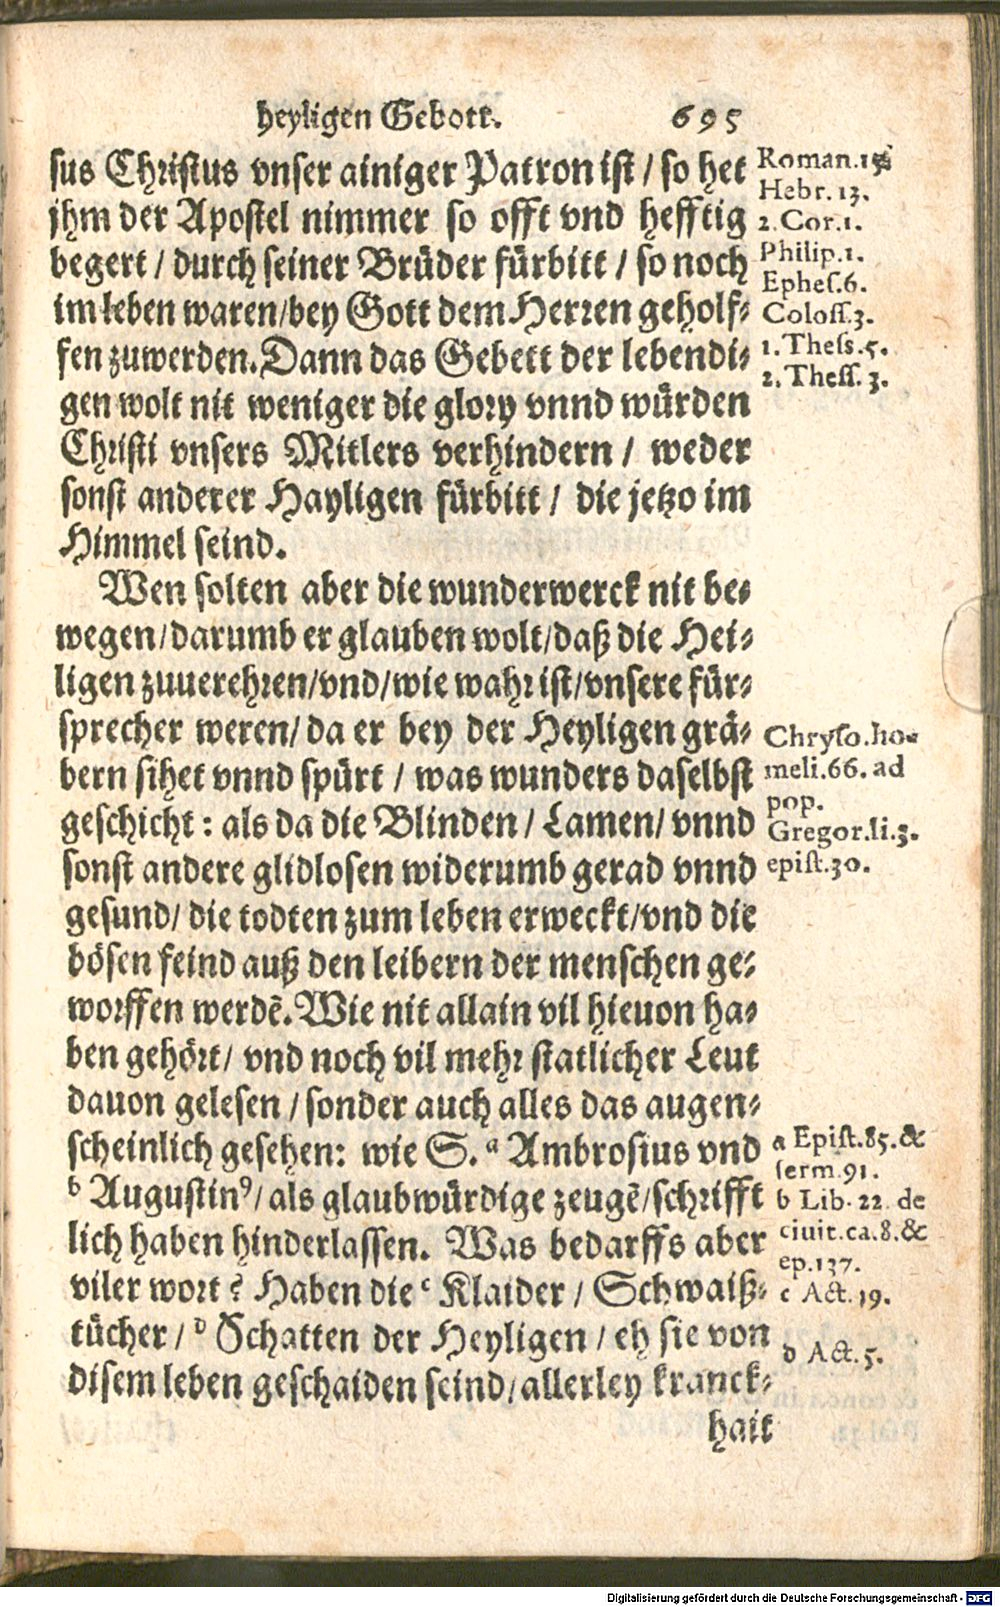 heyligen Gebott. 695
sus Christus vnser ainiger Patron ist / so het
jhm der Apostel nimmer so offt vnd hefftig
begert / durch seiner Brüder fürbitt / so noch
im leben waren/bey Gott dem Herren geholf-
fen zuwerden. Dann das Gebett der lebendi-
gen wolt nit weniger die glory vnnd würden
Christi vnsers Mitlers verhindern / weder
sonst anderer Hayligen fürbitt / die jetzo im
Himmel seind.
Roman.15
Hebr. 13.
2. Cor.1.
Philip.1.
Ephes.6.
Coloss.3.
1. Thess. 5.
2. Thess. 3.
Wen solten aber die wunderwerck nit be-
wegen/darumb er glauben wolt/daß die Hei-
ligen zuuerehren/vnd/wie wahr ist/vnsere für-
sprecher weren/ da er bey der Heyligen grä-
bern sihet vnnd spürt / was wunders daselbst
geschicht : als da die Blinden / Lamen/ vnnd
sonst andere glidlosen widerumb gerad vnnd
gesund/ die todten zum leben erweckt/vnd die
bösen feind auß den leibern der menschen ge-
worffen werdē. Wie nit allain vil hieuon ha-
ben gehört/ vnd noch vil mehr statlicher Leut
dauon gelesen / sonder auch alles das augen-
scheinlich gesehen: wie S. a Ambrosius vnd
b Augustinꝰ/ als glaubwürdige zeugē/schrifft
lich haben hinderlassen. Was bedarffs aber
viler wort? Haben die c Klaider / Schwaiß-
tücher / d Schatten der Heyligen / eh sie von
disem leben geschaiden seind/allerley kranck-
hait
Chryso.ho-
meli.66. ad
pop.
Gregor.li.3.
epist.30.
a Epist.85.&
serm.91.
b Lib. 22. de
ciuit.ca.8.&
ep.137.
c Act. 19.
d Act. 5.
Digitalisierung gefördert durch die Deutsche Forschungsgemeinschaft - DFG